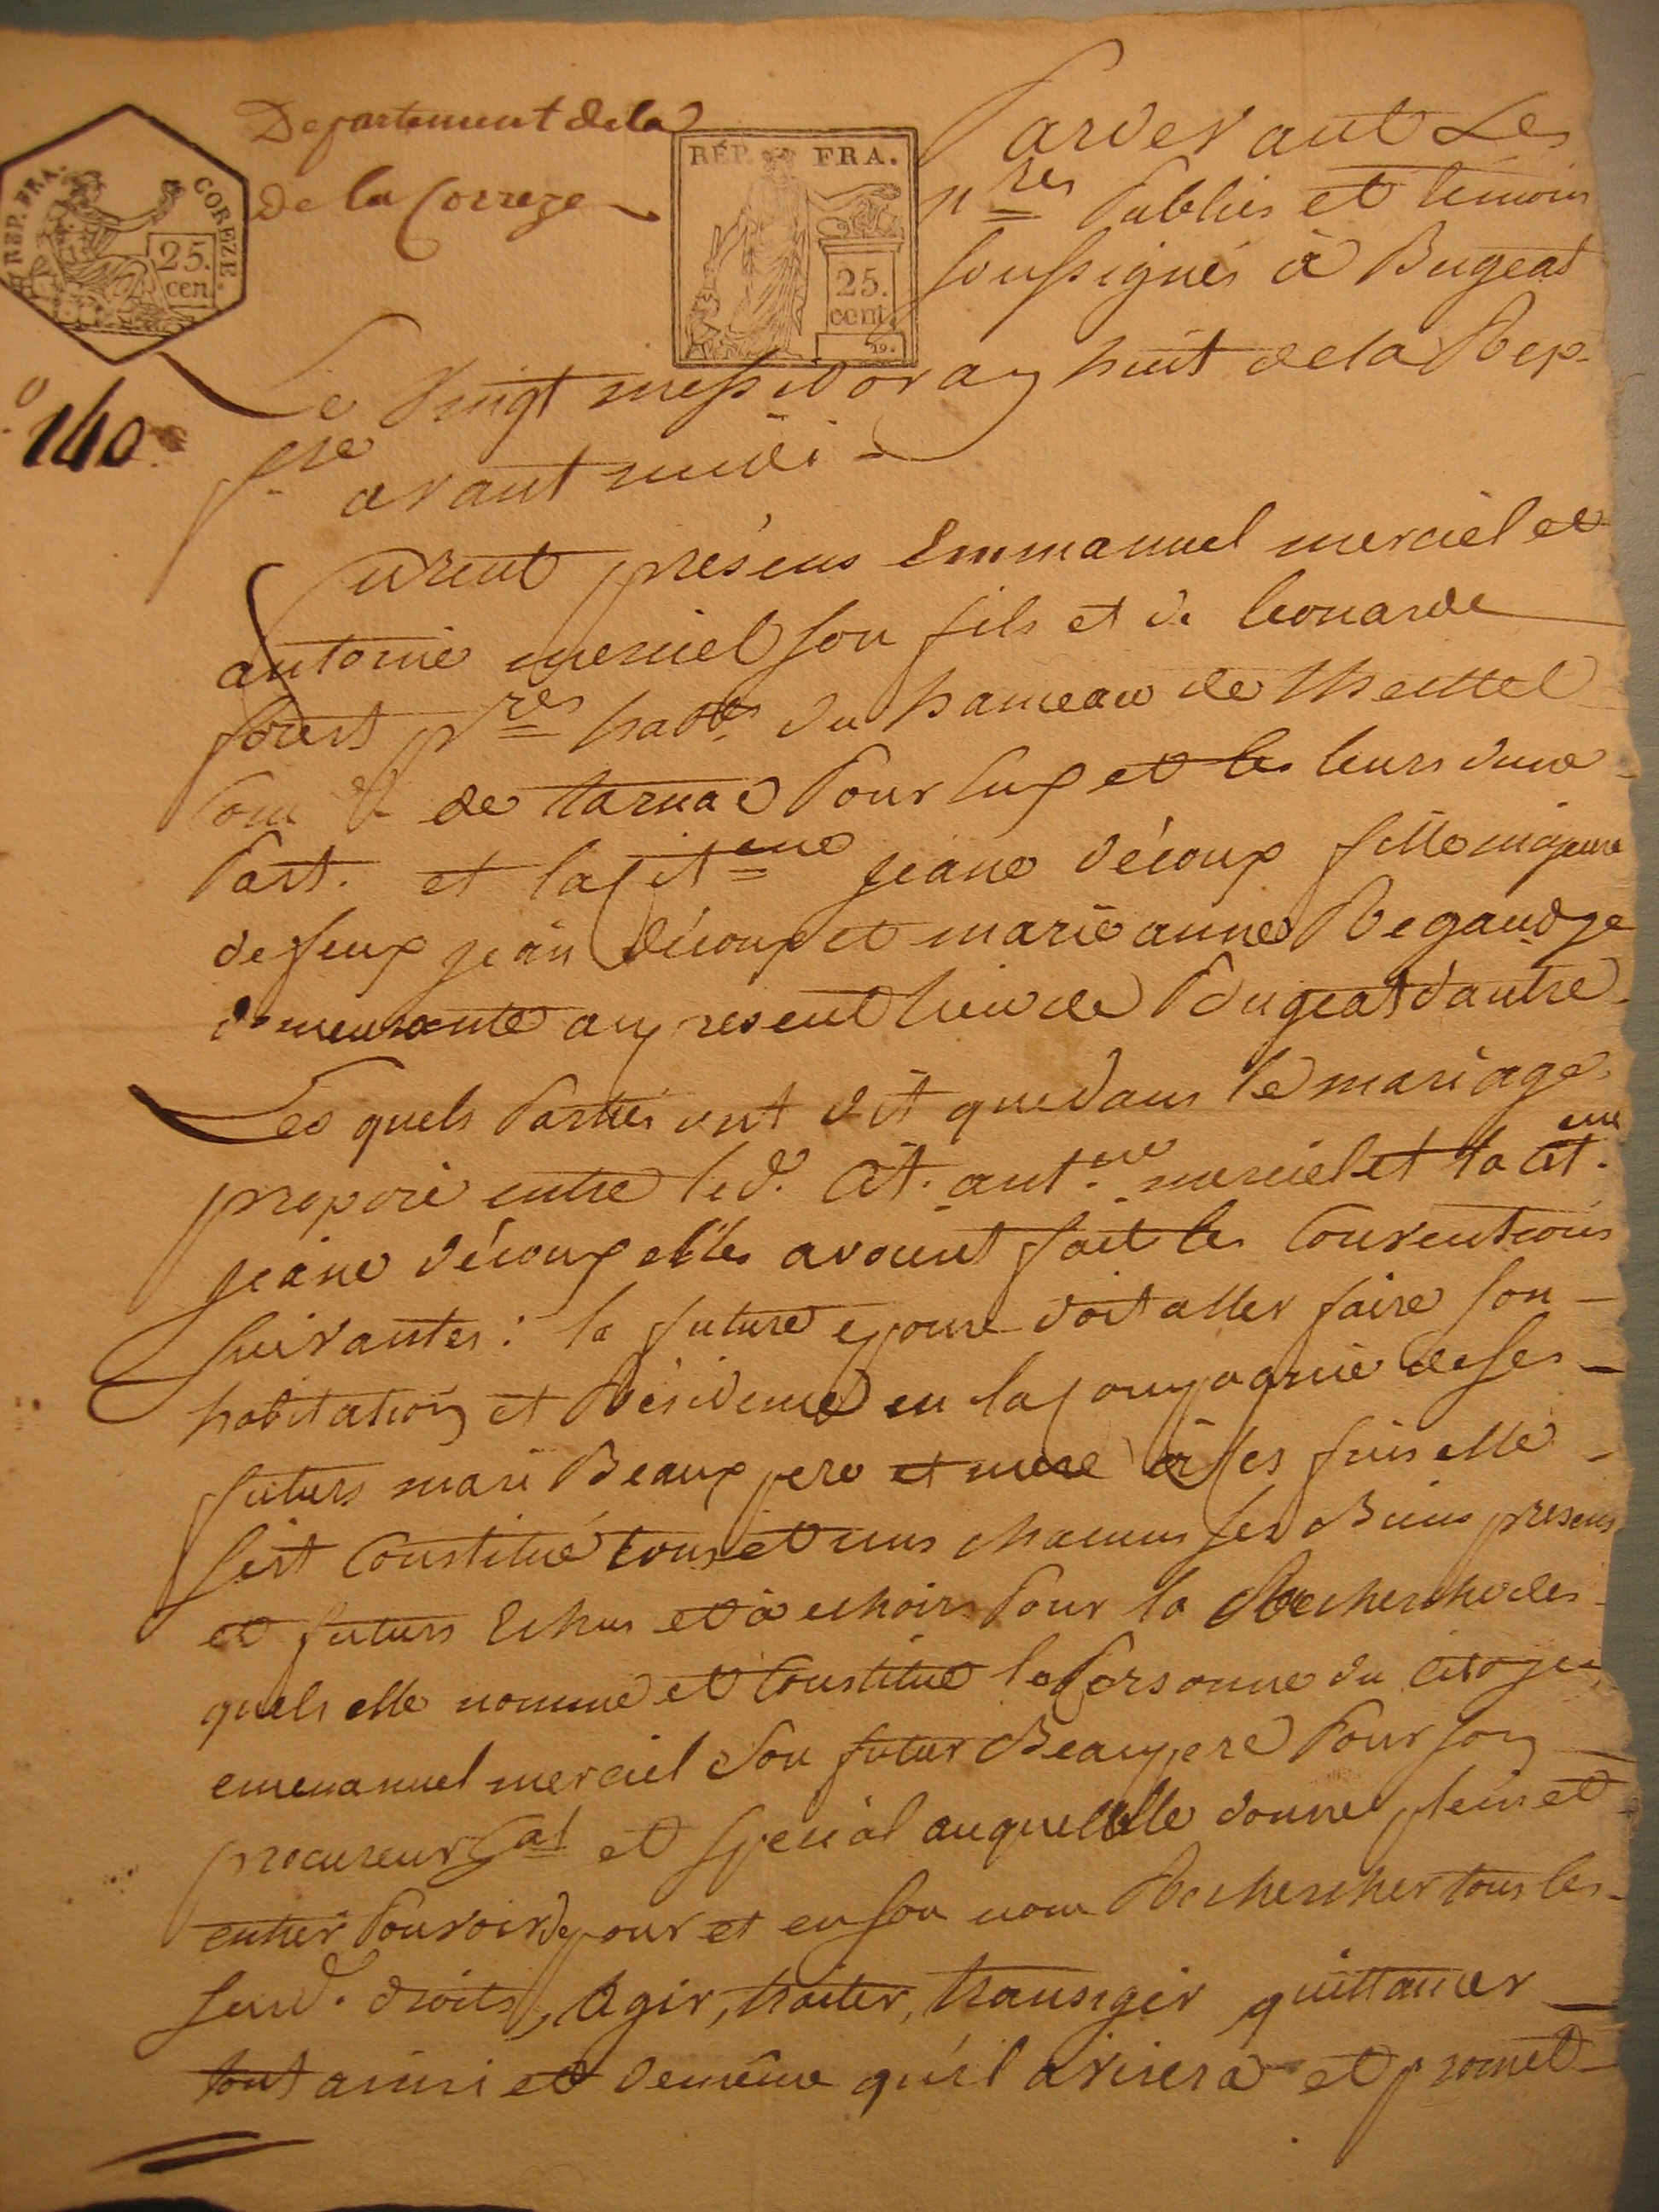 Departement dela
de la Correze
RÉP. FRA. COREZE.
25. cen.
RÉP. FRA.
25. cent.
19.
140
Pardevant Les
nres Publics et témoins
soussignés à Bugeat
Le vingt messidor an huit dela Rep-
que avant midi
Furent présens Emmanuel merciel et
antoine merciel son fils et de leonarde
forest pres habts du hameau de
Come de tarnac Pour lux et les leurs dune
Part. et la citene jeane découx fille majeure
de feux jean découx et marie anne Regaudge
demeurante au present lieu de Bugeat dautre
Les quels Parties ont dit que dans le mariage
proposé entre led. Cit. antne merciel et la citene
jeane découx elles avoient fait les Conventions
suivantes: la future epouse doit aller faire son
habitation et Résidence en la Compagnie de ses
futurs mari Beaux pere et mere à ses fins elle
sest Constitué tous et uns chacuns ses Biens presens
et futurs Echus et à echoir Pour la Recherche des
quels elle nomme et Constitue la Personne du citoyen
emmanuel merciel son futur Beaupere Pour son
procureur gal et special auquel elle donne plein et
entier Pouvoir de pour et en son nom Rechercher tous les
susd. droits, Agir, traiter, transiger quittancer
tout ainsi et de même qu'il avisera et promet